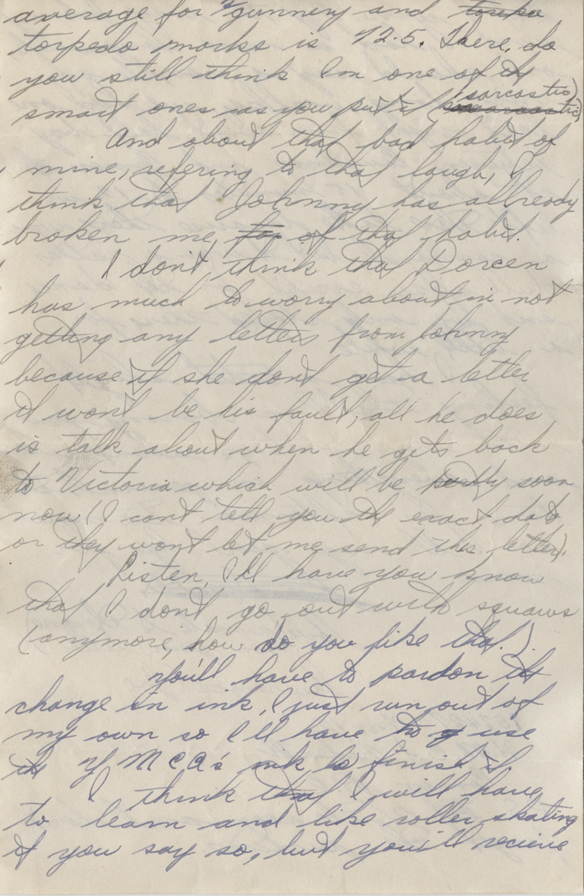 average for gunnery and torpedo
torpedo marks is 92.5. There, do
you still think I'm one of the
smart ones as you put it (sarcastic)
And about that bad habit of
mine, refering to that laugh, I
think that Johnny has allready
broken me, for of that habit.
I don't think that Doreen
has much to worry about in not
getting any letters from Johnny
because if she don't get a letter
it won't be his fault, all he does
is talk about when he gets back
to Victoria which will be pretty soon
now (I cant tell you the exact date
or they won't let me send this letter).
Listen, I'll have you know
that I don't go out with squaws
(anymore, how do you like that.)
You'll have to pardon the
change in ink, I just run out of
my own so I'll have to use
the Y M C A's ink to finish it
I think that I will have
to learn and like roller skating
if you say so, but you'll recieve